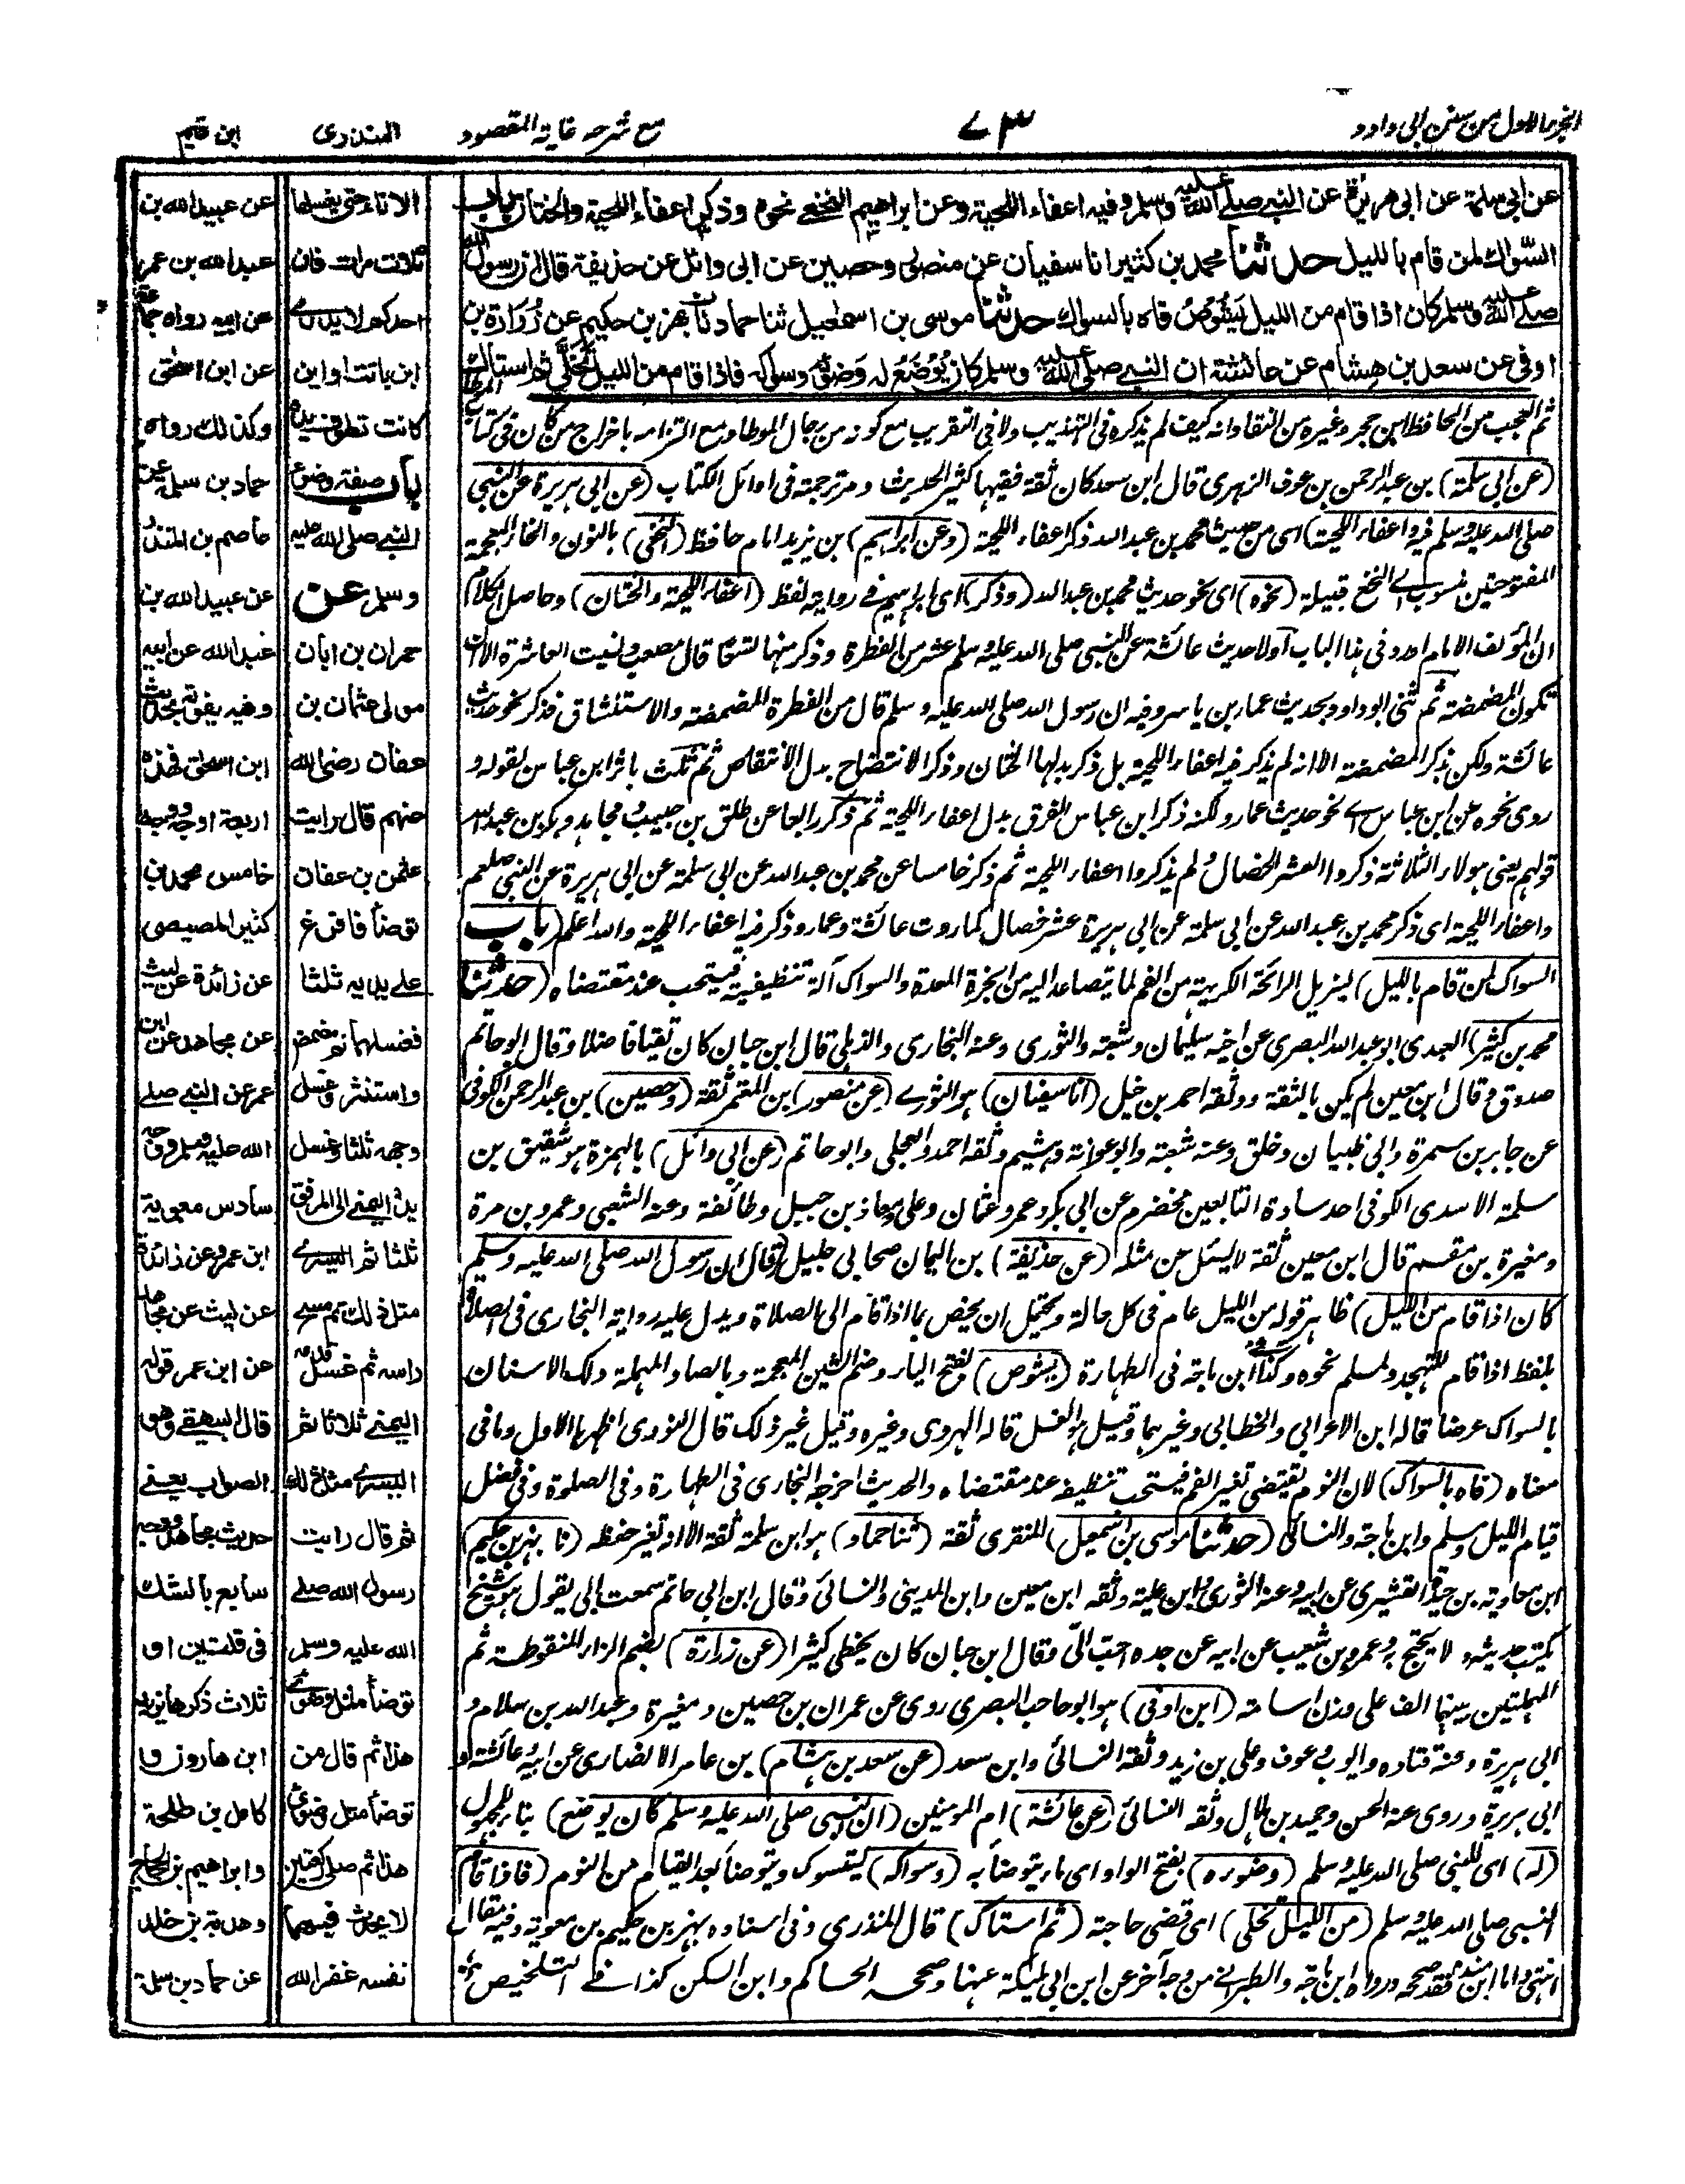 الجزء الاول من سنن ابی داود
۷۳
مع شرحه غاية المقصود
المنذری
ابن قیم
عن ابی سلمة عن ابی هريرة عن النبی صلی الله علیه وسلم وفیه اعفاء اللحية وعن ابراهيم النخعی نحوه وذكر اعفاء اللحية والختان باب
السواك لمن قام بالليل حدثنا محمد بن كثير انا سفيان عن منصور وحصين عن ابی وائل عن حذيفة قال ان رسول الله
صلی الله علیه وسلم كان اذا قام من الليل يَشُوصُ فاه بالسواك حدثنا موسى بن اسمعيل ثنا حماد نا بهز بن حكيم عن زُرَارة بن
اوفى عن سعد بن هشام عن عائشة ان النبی صلی الله علیه وسلم كان يُوضَعُ له وَضوؤه وسواكه فاذا قام من الليل تَخَلَّى ثم استاك
ثم العجب من الحافظ ابن حجر وغيره من النقاد انه كيف لم يذكره فی التهذيب ولا فی التقريب مع كونه من رجال الموطا ومع التزامه باخراج من كان فی كتاب
(عن ابی سلمة) بن عبد الرحمن بن عوف الزهری قال ابن سعد كان ثقة فقيها كثير الحديث ومر ترجمته فی اوائل الكتاب (عن ابی هريرة عن النبی
صلی الله علیه وسلم فیه واعفاء اللحية) ای من حديث محمد بن عبد الله ذكر اعفاء اللحية (وعن ابراهيم) بن يزيد امام حافظ (النخعی) بالنون والخاء المعجمة
المفتوحتين منسوب الی النخع قبيلة (نحوه) ای نحو حديث محمد بن عبد الله (وذكر) ای ابراهيم فی روايته لفظ (اعفاء اللحية والختان) وحاصل الكلام
ان المؤلف الامام اورد فی هذا الباب اولا حديث عائشة عن النبی صلی الله علیه وسلم عشر من الفطرة وذكر منها تسعًا قال مصعب ونسيت العاشرة الا ان
تكون المضمضة ثم ثنى ابو داود بحديث عمار بن ياسر وفيه ان رسول الله صلی الله علیه وسلم قال من الفطرة المضمضة والاستنشاق فذكر نحو حديث
عائشة ولكن بذكر المضمضة الا انه لم يذكر فيه اعفاء اللحية بل ذكر بدلها الختان وذكر الانتضاح بدل الانتقاص ثم ثلث باثر ابن عباس بقوله و
روی نحوه عن ابن عباس ای نحو حديث عمار ولكنه ذكر ابن عباس الفرق بدل اعفاء اللحية ثم ذكر رابعا عن طلق بن حبيب ومجاهد وبكر بن عبد الله
قولهم يعنی هولاء الثلاثة ذكروا العشر الخصال ولم يذكروا اعفاء اللحية ثم ذكر خامسا عن محمد بن عبد الله عن ابی سلمة عن ابی هريرة عن النبی صلعم
واعفاء اللحية ای ذكر محمد بن عبد الله عن ابی سلمة عن ابی هريرة عشر خصال كما روت عائشة وعمار وذكر فيه اعفاء اللحية والله اعلم (باب
السواك لمن قام بالليل) ليزيل الرائحة الكريهة من الفم لما يتصاعد اليه من ابخرة المعدة والسواك آلة تنظيفية فيستحب عند مقتضاه (حدثنا
محمد بن كثير) العبدی ابو عبد الله البصری عن اخيه سليمان وشعبة والثوری وعنه البخاری والذهلی قال ابن حبان كان تقيا فاضلا وقال ابو حاتم
صدوق وقال ابن معين لم يكن بالثقة ووثقه احمد بن حنبل (انا سفيان) هو الثوری (عن منصور) بن المعتمر ثقة (وحصين) بن عبد الرحمن الكوفی
عن جابر بن سمرة وابی ظبيان وخلق وعنه شعبة وابو عوانة وهشيم وثقه احمد والعجلی وابو حاتم (عن ابی وائل) بالهمزة هو شقيق بن
سلمة الاسدی الكوفی احد سادة التابعين مخضرم عن ابی بكر وعمر وعثمان وعلی ومعاذ بن جبل وطائفة وعنه الشعبی وعمرو بن مرة
ومغيرة بن مقسم قال ابن معين ثقة لا يسئل عن مثله (عن حذيفة) بن اليمان صحابی جليل (قال ان رسول الله صلی الله علیه وسلم
كان اذا قام من الليل) ظاهر قوله من الليل عام فی كل حالة ويحتمل ان يخص بما اذا قام الی الصلاة ويدل عليه رواية البخاری فی الصلاة
بلفظ اذا قام للتهجد ولمسلم نحوه وكذا ابن ماجة فی الطهارة (يشوص) بفتح الياء وضم الشين المعجمة وبالصاد المهملة دلك الاسنان
بالسواك عرضا قاله ابن الاعرابی والخطابی وغيرهما وقيل هو الغسل قاله الهروی وغيره وقيل غير ذلك قال النووی اظهرها الاول وما فی
معناه (فاه بالسواك) لان النوم يقتضی تغير الفم فيستحب تنظيفه عند مقتضاه والحديث اخرجه البخاری فی الطهارة وفی الصلوة وفی فضل
قيام الليل ومسلم وابن ماجة والنسائی (حدثنا موسى بن اسمعيل) المنقری ثقة (ثنا حماد) هو ابن سلمة ثقة الا انه تغير حفظه (نا بهز بن حكيم)
ابن معاوية بن حيدة القشيری عن ابيه وعنه الثوری وابن علية وثقه ابن معين وابن المدينی والنسائی وقال ابن ابی حاتم سمعت ابی يقول هو شيخ
يكتب حديثه ولا يحتج به وعمرو بن شعيب عن ابيه عن جده احب الیّ وقال ابن حبان كان يخطی كثيرا (عن زرارة) بضم الزاء المنقوطة ثم
المهملتين بينهما الف علی وزن اسامة (ابن اوفی) هو ابو حاجب البصری روی عن عمران بن حصين ومغيرة وعبد الله بن سلام و
ابی هريرة وعنه قتاده وايوب وعوف وعلی بن زيد وثقة النسائی وابن سعد (عن سعد بن هشام) بن عامر الانصاری عن ابيه وعائشة و
ابی هريرة وروی عنه الحسن وحميد بن هلال وثقه النسائی (عن عائشة) ام المومنين (ان النبی صلی الله علیه وسلم كان يوضع) بناء للمجهول
(له) ای للنبی صلی الله علیه وسلم (وضوءه) بفتح الواو ای ماء يتوضأ به (وسواكه) ليتسوك ويتوضأ بعد القيام من النوم (فاذا قام)
النبی صلی الله علیه وسلم (من الليل تخلی) ای قضی حاجته (ثم استاك) قال المنذری وفی اسناده بهز بن حكيم بن معوية وفيه مقال
انتهی واما ابن منده فقد صححه ورواه ابن ماجة والطبرانی من وجه آخر عن ابن ابی مليكة عنها وصححه الحاكم وابن السكن كذا فی التلخيص
الاناء حتی يغسلها
ثلاث مرات فان
احدكم لا يدری
این باتت او این
كانت تطوف يده
باب صفة وضوء
النبی صلی الله علیه
وسلم عن
حمران بن ابان
مولی عثمان بن
عفان رضی الله
عنهم قال رايت
عثمن بن عفان
توضأ فافرغ
علی يديه ثلثا
فغسلهما ثم مضمض
واستنثر وغسل
وجهه ثلثا وغسل
يده اليمنی الی المرفق
ثلثا ثم اليسری
مثل ذلك ثم مسح
راسه ثم غسل قدمه
اليمنی ثلاثا ثم
اليسری مثل ذلك
ثم قال رايت
رسول الله صلی
الله عليه وسلم
توضأ مثل وضوئی
هذا ثم قال من
توضأ مثل وضوئی
هذا ثم صلی ركعتين
لا يحدث فيهما
نفسه غفر الله
عن عبيد الله بن
عبد الله بن عمر
عن ابيه رواه جماعة
عن ابن اسحٰق
وكذلك رواه
حماد بن سلمة عن
عاصم بن المنذر
عن عبيد الله بن
عبد الله عن ابيه
وفيه بقوته بحديث
ابن اسحق فهذه
اربعة اوجه ووجه
خامس محمد بن
كثير المصيصی
عن زائدة عن ليث
عن مجاهد عن ابن
عمر عن النبی صلی
الله عليه وسلم ووجه
سادس معوية
ابن عمرو عن زائدة
عن ليث عن مجاهد
عن ابن عمر قوله
قال البيهقی وهو
الصواب يعنی
حديث مجاهد ووجه
سابع بالشك
فی قلتين او
ثلاث ذكرها يزيد
ابن هارون و
كامل بن طلحة
وابراهيم بن الحجاج
وهدبة بن خالد
عن حماد بن سلمة